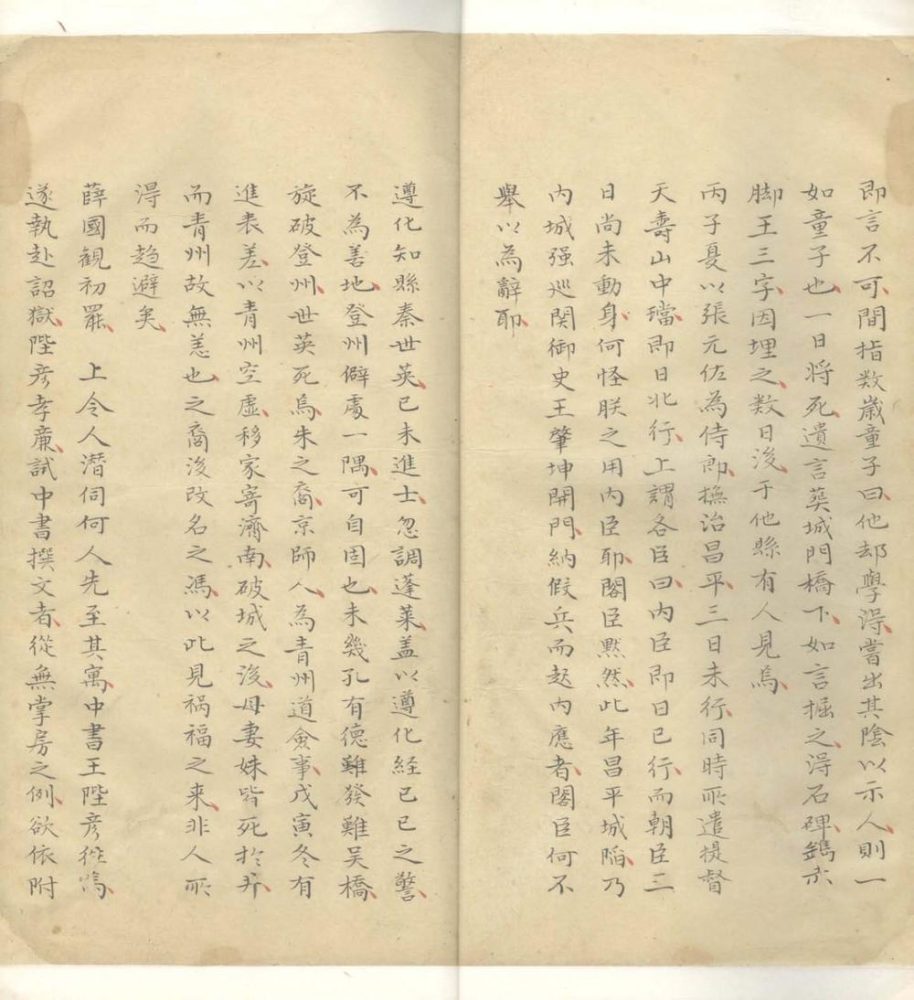 即言不可間指数歲童子曰他却學淂嘗出其陰以示人則一
如童子也一日将死遺言葬城門橋下如言掘之淂石碑鐫赤
脚王三字因埋之数日後于他縣有人見焉
丙子夏以張元佐為侍郎撫治昌平三日未行同時所遣提督
天壽山中璫即日北行上謂各臣曰内臣即日已行而朝臣三
日尚未動身何怪朕之用内臣耶閣臣黙然此年昌平城陥乃
内城强巡関御史王肇坤開門納假兵而起内應者閣臣何不
舉以為辭耶
遵化知縣秦世英已未進士忽調蓬萊盖以遵化経已巳之警
不為善地登州僻處一隅可自固也未幾孔有德難發難吴橋
旋破登州世英死焉朱之裔京師人為青州道僉事戊寅冬有
進表差以青州空虛移家寄濟南破城之後母妻妹皆死於井
而青州故無恙也之裔後改名之馮以此見禍福之来非人所
淂而趋避矣
薛國観初罷　上令人潜伺何人先至其寓中書王陛彦往焉
遂執赴詔獄陛彦孝廉試中書撰文者從無掌房之例欲依附